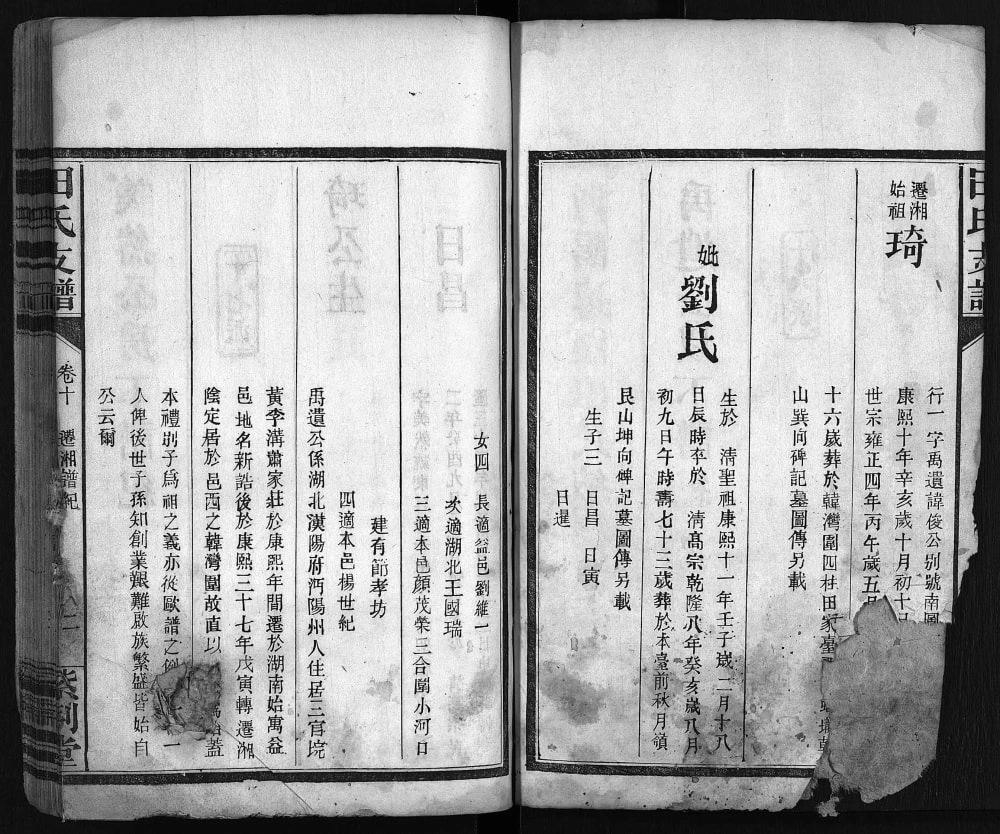 田氏支譜
遷湘
始祖
琦
行一字禹遺諱俊公別號南圃
康熙十年辛亥歲十月初十
世宗雍正四年丙午歲五月
十六歲葬於韓灣圍四柱田家臺
山巽向碑記墓圖傳另載
妣
劉氏
生於 清聖祖康熙十一年壬子歲二月十八
日辰時卒於 清高宗乾隆八年癸亥歲八月
初九日午時壽七十三歲葬於本臺前秋月嶺
艮山坤向碑記墓圖傳另載
生子三 日昌 日寅
日暹
女四 長適益邑劉維一
次適湖北王國瑞
三適本邑顏茂榮三合圍小河口
建有節孝坊
四適本邑楊世紀
禹遺公係湖北漢陽府沔陽州人住居三官垸
黃李溝蕭家莊於康熙年間遷於湖南始寓益
邑地名新誥後於康熙三十七年戊寅轉遷湘
陰定居於邑西之韓灣圍故直以 爲始蓋
本禮別子爲祖之義亦從歐譜之例 一
人俾後世子孫知創業艱難啟族繁盛皆始自
公云爾
田氏支譜
卷十 遷湘譜紀
紫荊堂